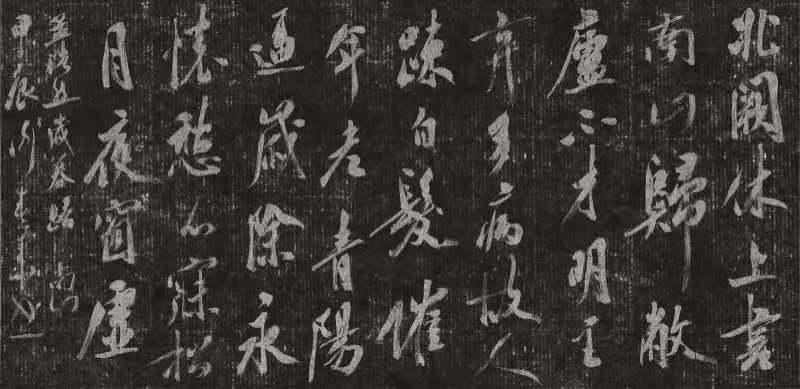 北闕休上書
南山歸敝
廬不才明主
弃多病故人
踈自髮催
年老青陽
逼歲除永
懷愁不寐松
月夜窗虛
孟浩然歲暮歸南山
甲辰